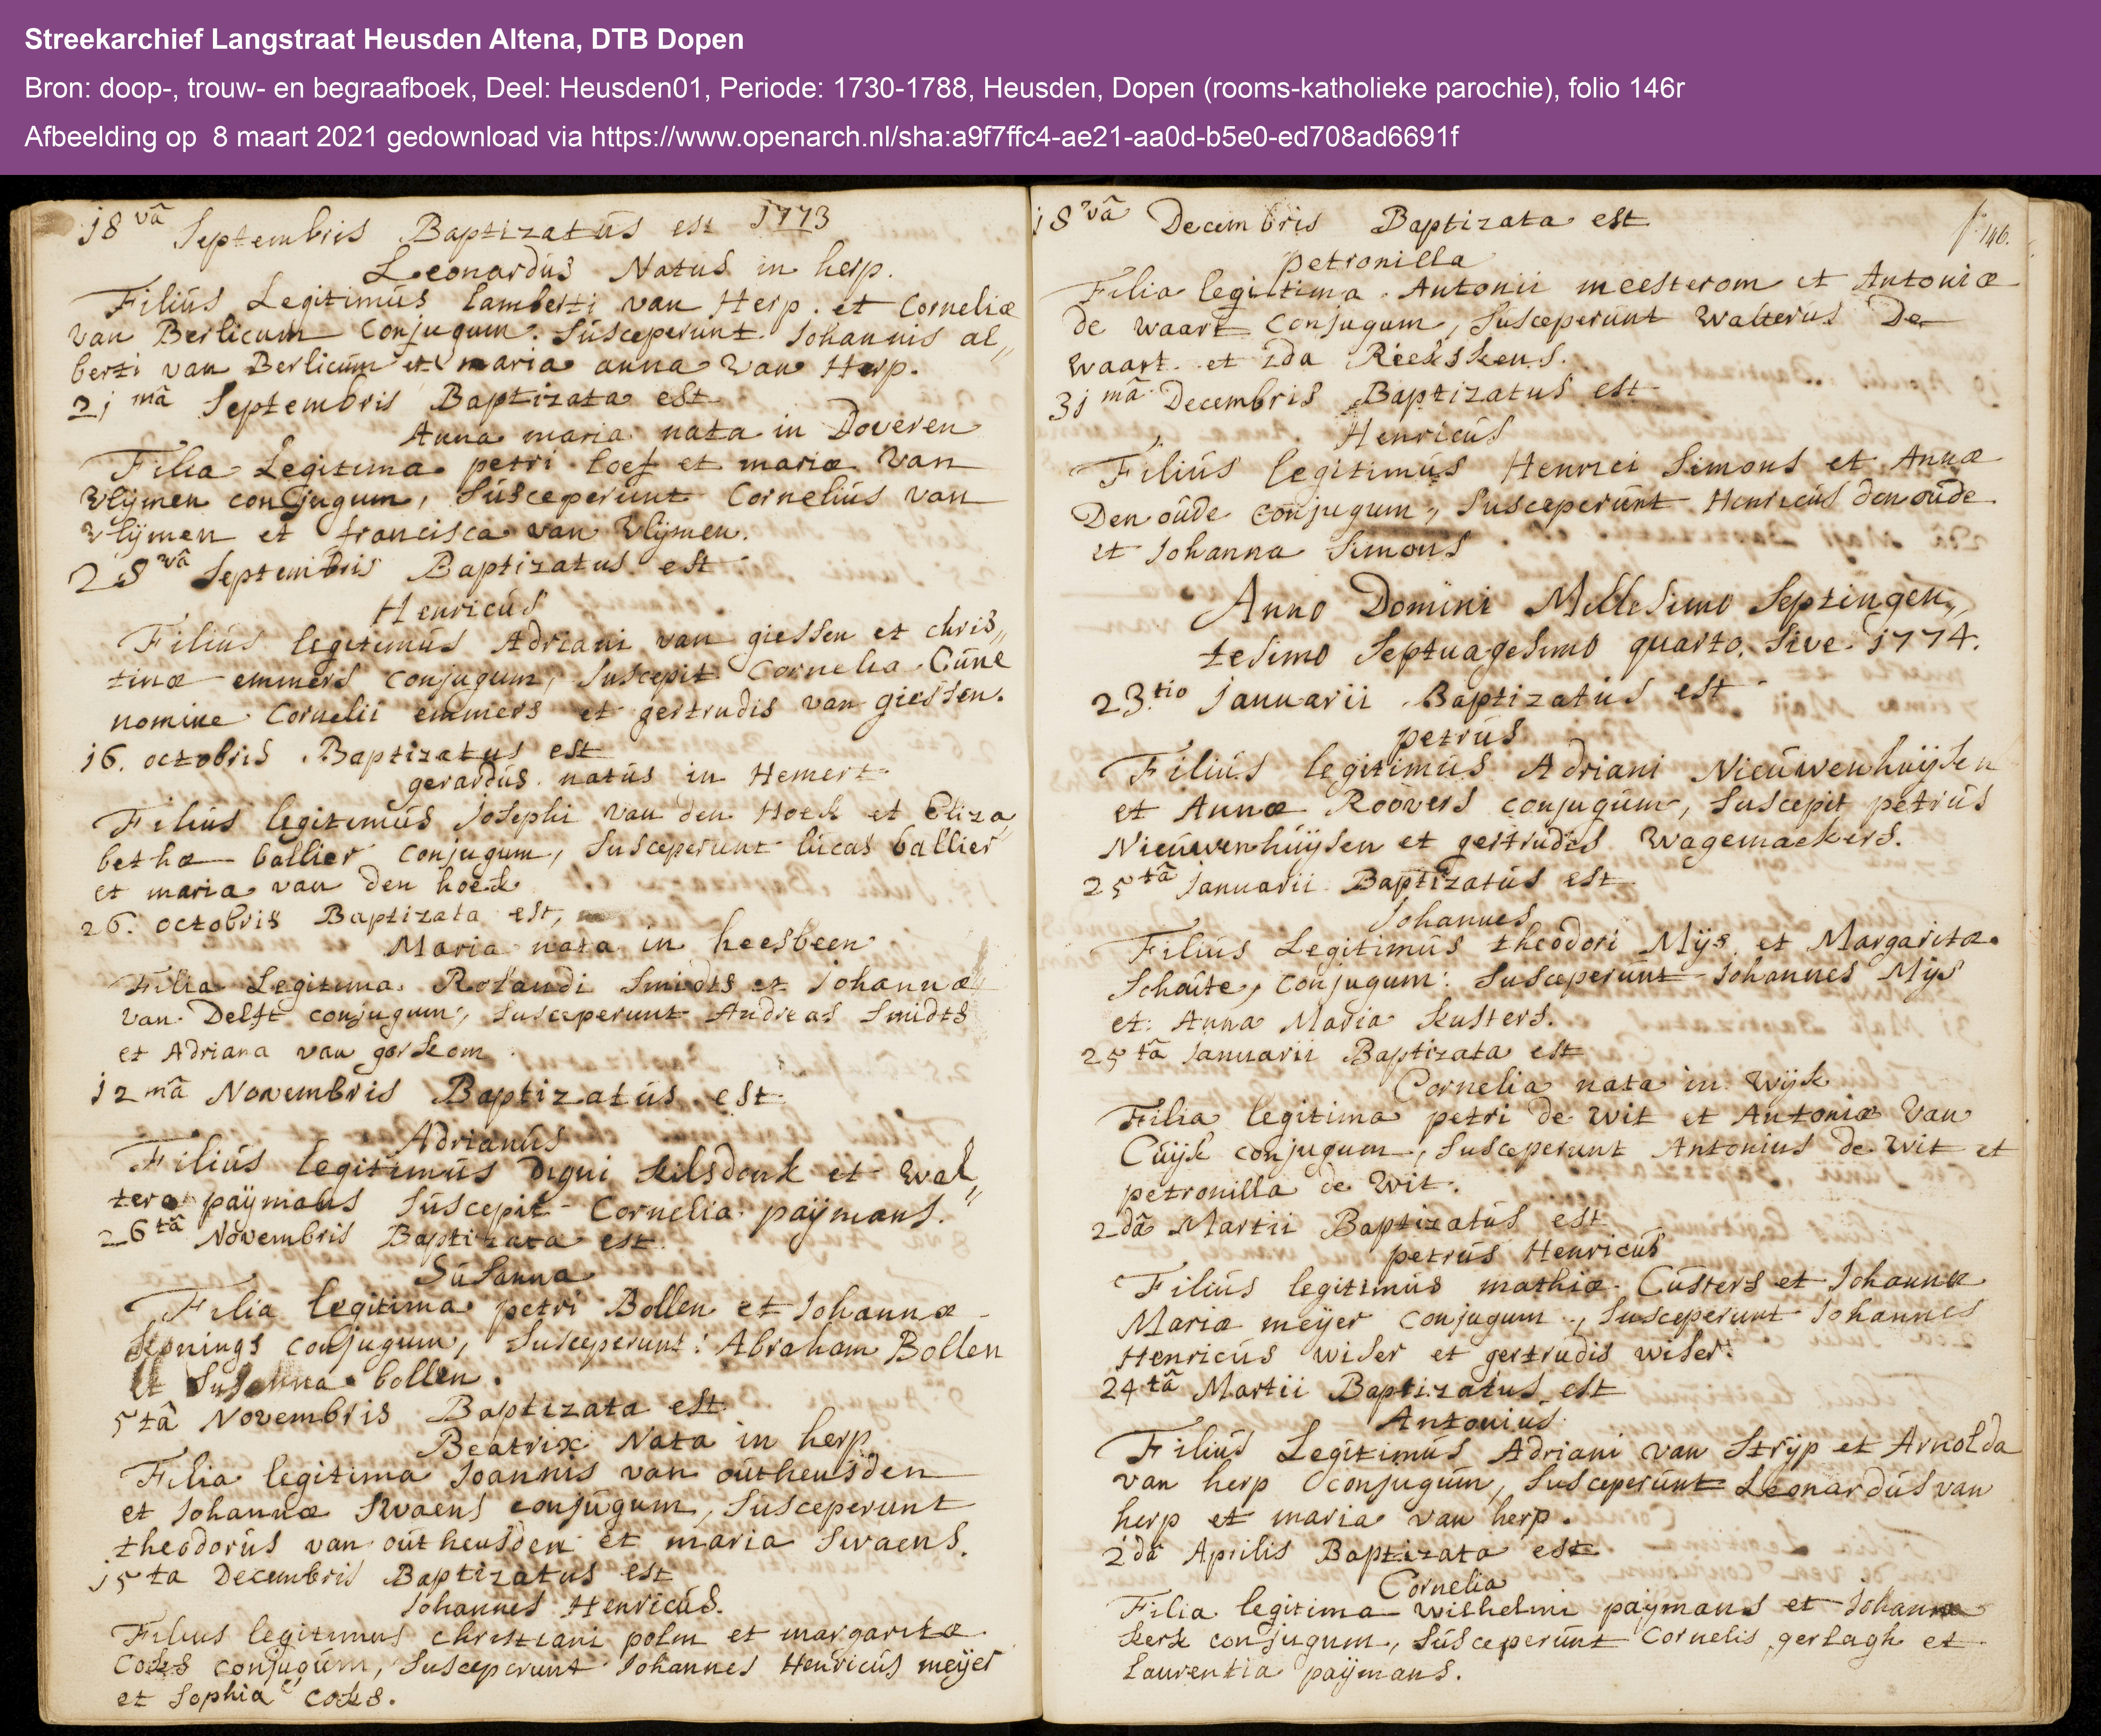 Streekarchief Langstraat Heusden Altena, DTB Dopen
Bron: doop-, trouw- en begraafboek, Deel: Heusden01, Periode: 1730-1788, Heusden, Dopen (rooms-katholieke parochie), folio 146r
Afbeelding op 8 maart 2021 gedownload via https://www.openarch.nl/sha:a9f7ffc4-ae21-aa0d-b5e0-ed708ad6691f
18 vâ Septembris Baptizatus est 1773
Leonardus Natus in herp.
Filius Legitimus lamberti van Herp. et Corneliæ
van Berlicum Conjugum. Susceperunt Johannis al„
berti van Berlicum et maria anna van Herp.
21 mâ Septembris Baptizata est
Anna maria nata in Doveren
Filia Legitima petri loef et mariæ van
vlijmen conjugum, Susceperunt Cornelius van
vlijmen et francisca van vlijmen.
28 vâ Septembris Baptizatus est
Henricus
Filius legitimus Adriani van giessen et chris„
tinæ emmers conjugum, Suscepit Cornelia Cüne
nomine Cornelii emmers et gertrudis van giessen.
16. octobris Baptizatus est
gerardus natus in Hemert
Filius legitimus Josephi van den Hoek et Eliza„
bethæ ballier conjugum, Susceperunt lucas ballier
et maria van den hoek
26. octobris Baptizata est,
Maria nata in heesbeen
Filia Legitima Rolandi Smidts et Johannæ
van Delft conjugum, Susceperunt Andreas Smidts
et Adriana van gorkom
12 mâ Novembris Baptizatus est
Adrianus
Filius legitimus Digni kilsdonk et Wal„
tera paÿmans Suscepit Cornelia paÿmans.
26 tâ Novembris Baptizata est
Susanna
Filia legitima petri Bollen et Johannæ
konings conjugum, Susceperunt: Abraham Bollen
et Susanna bollen.
5 tâ Novembris Baptizata est
Beatrix Nata in herp
Filia legitima Joannis van outheusden
et Johannæ Swaens conjugum, Susceperunt
theodorus van outheusden et maria Swaens.
15 ta Decembris Baptizatus est
Johannes Henricus.
Filius legitimus christiani polm et margaritæ
Coks conjugum, Susceperunt Johannes Henricus meijer
et Sophia coks.
18 vâ Decembris Baptizata est
f. 146.
petronilla
Filia legitima Antonii meesterom et Antoniæ
de waart conjugum, Susceperunt walterus De
waart et Ida Riekskens.
31 mâ Decembris Baptizatus est
Henricus
Filius legitimus Henrici Simons et Annæ
Den oude conjugum, Susceperunt Henricus den oude
et Johanna Simons
Anno Domini Millesimo Septingen„
tesimo Septuagesimo quarto. Sive 1774.
23. tio Januarii Baptizatus est
petrus
Filius legitimus Adriani Nieuwenhuÿsen
et Annæ Roovers conjugum, Suscepit petrus
Nieuwenhuÿsen et gertrudis Wagemaekers.
25 tâ Januarii Baptizatus est
Johannes
Filius Legitimus theodori Mijs et Margarita
Schoute, Conjugum: Susceperunt Johannes Mijs
et: Anna Maria kusters.
25 tâ Januarii Baptizata est
Cornelia nata in Wijk
Filia legitima petri de wit et Antoniæ Van
Cuijk conjugum, Susceperunt Antonius de wit et
petronilla de Wit.
2 dâ Martii Baptizatus est
petrus Henricus
Filius legitimus mathiæ Custers et Johannæ
Mariæ meijer conjugum, Susceperunt Johannes
Henricus wiser et gertrudis wiser.
24 tâ Martii Baptizatus est
Antonius
Filius Legitimus Adriani van Strijp et Arnolda
van herp conjugum, Susceperunt Leonardus van
herp et maria van herp.
2 dâ Aprilis Baptizata est
Cornelia
Filia legitima Wilhelmi paÿmans et Johanna
kerk conjugum, Susceperunt Cornelis gerlagh et
Laurentia paÿmans.